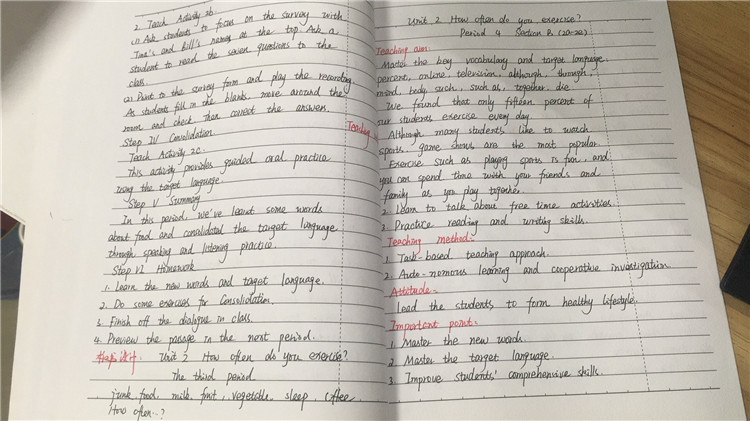 2. Teach Activity 2b.
(1) Ask students to focus on the survey with
Tina's and Bill's names at the top. Ask a
student to read the seven questions to the
class.
(2) Point to the survey form and play the recording.
As students fill in the blanks, move around the
room and check then correct the answers.
Step IV Consolidation
Teach Activity 2C.
This activity provides guided oral practice
using the target language.
Step V Summary
In this period, we've learnt some words
about food and consolidated the target language
through speaking and listening practice.
Step VI Homework
1. Learn the new words and target language.
2. Do some exercises for Consolidation.
3. Finish off the dialogue in class.
4. Preview the passage in the next period.
板书设计: Unit 2 How often do you exercise?
The third period
junk food, milk, fruit, vegetable, sleep, coffee.
How often..?
Unit 2 How often do you exercise?
Period 4 Section B
Teaching aim:
Master the key vocabulary and target language.
percent, online, television, although, through,
mind, body, such, such as, together, die
We found that only fifteen percent of
our students exercise every day.
Although many students like to watch
sports, game shows are the most popular.
Exercise such as playing sports is fun, and
you can spend time with your friends and
family as you play together.
2. Learn to talk about free time activities.
3. Practice reading and writing skills.
Teaching method:
1. Task-based teaching approach.
2. Auto-nomous learning and cooperative investigation.
Attitude.
Lead the students to form healthy lifestyle.
Important point:
1. Master the new words.
2. Master the target language.
3. Improve students' comprehensive skills.